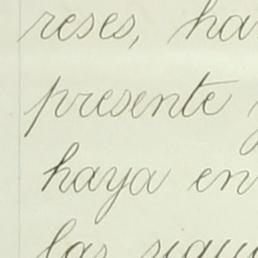 reses, ha
presente
haya en
las sigu